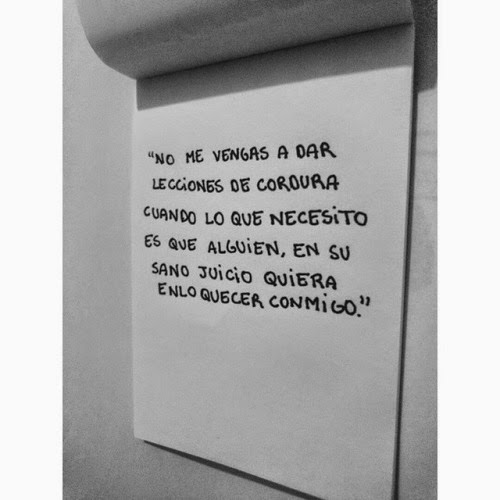 "NO ME VENGAS A DAR
LECCIONES DE CORDURA
CUANDO LO QUE NECESITO
ES QUE ALGUIEN, EN SU
SANO JUICIO QUIERA
ENLOQUECER CONMIGO."